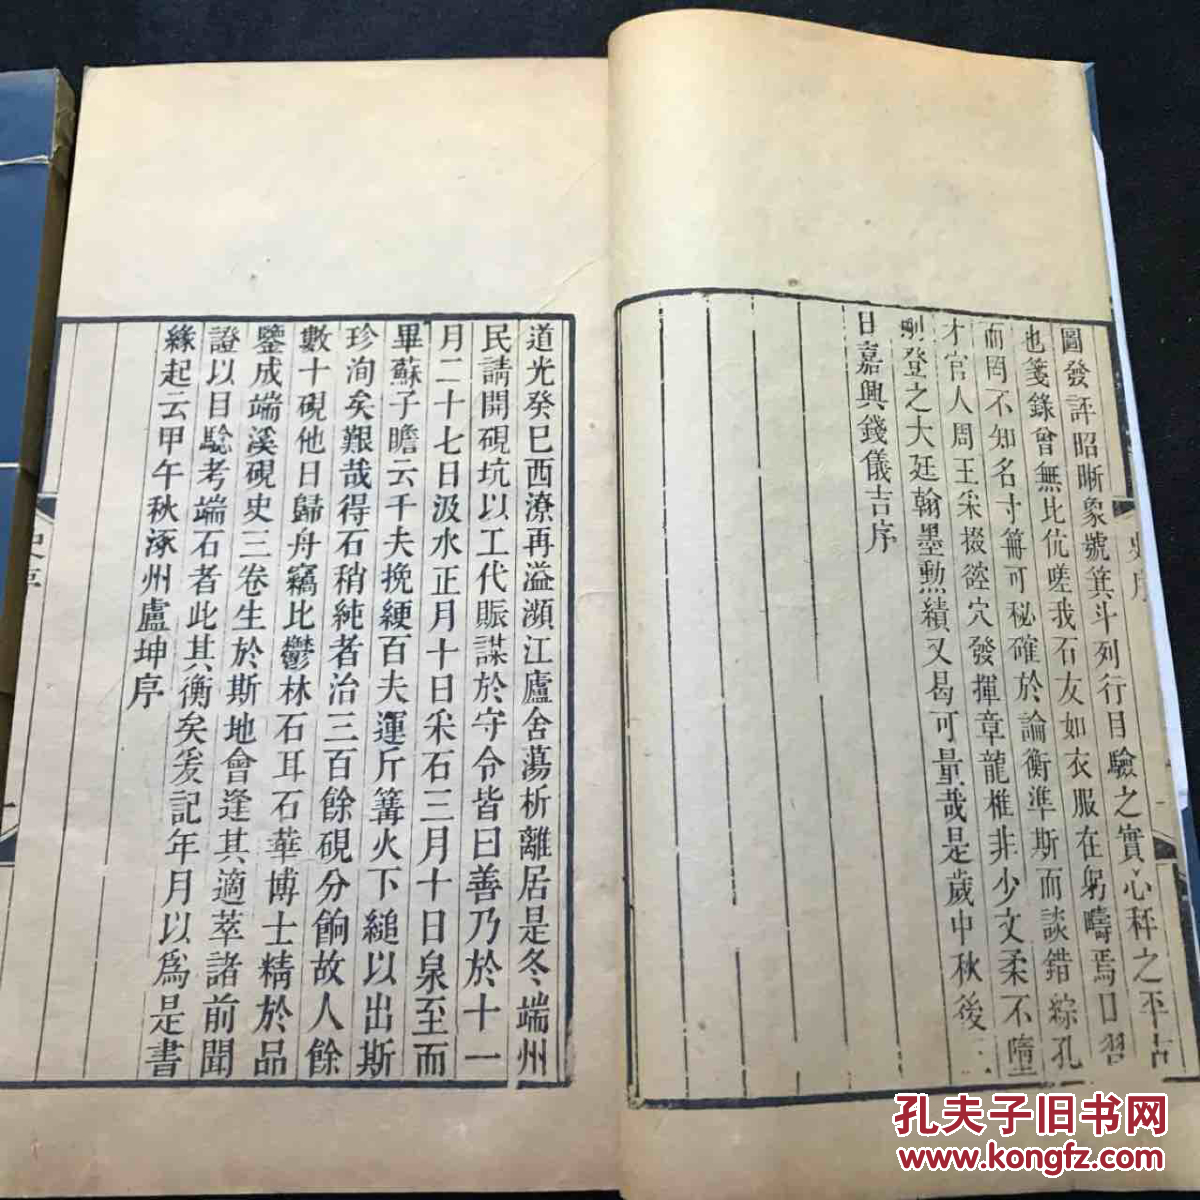 圖發評昭晰象號箕斗列行目驗之實心秤之平古
也箋錄曾無比伉嗟我石友如衣服在躬疇焉日習
而罔不知名寸籌可秘確於論衡準斯而談錯綜孔
才官人周王采掇窾穴發揮章龍椎非少文柔不墮
剛登之大廷翰墨勲績又曷可量哉是歲中秋後二
日嘉興錢儀吉序
道光癸巳西潦再溢瀕江廬舍蕩析離居是冬端州
民請開硯坑以工代賑謀於守令皆曰善乃於十一
月二十七日汲水正月十日采石三月十日泉至而
畢蘇子瞻云千夫挽綆百夫運斤篝火下縋以出斯
珍洵矣艱哉得石稍純者治三百餘硯分餉故人餘
數十硯他日歸舟竊比鬱林石耳石華博士精於品
鑒成端溪硯史三卷生於斯地會逢其適萃諸前聞
證以目驗考端石者此其衡矣爰記年月以爲是書
緣起云甲午秋涿州盧坤序
孔夫子旧书网
www.kongfz.com